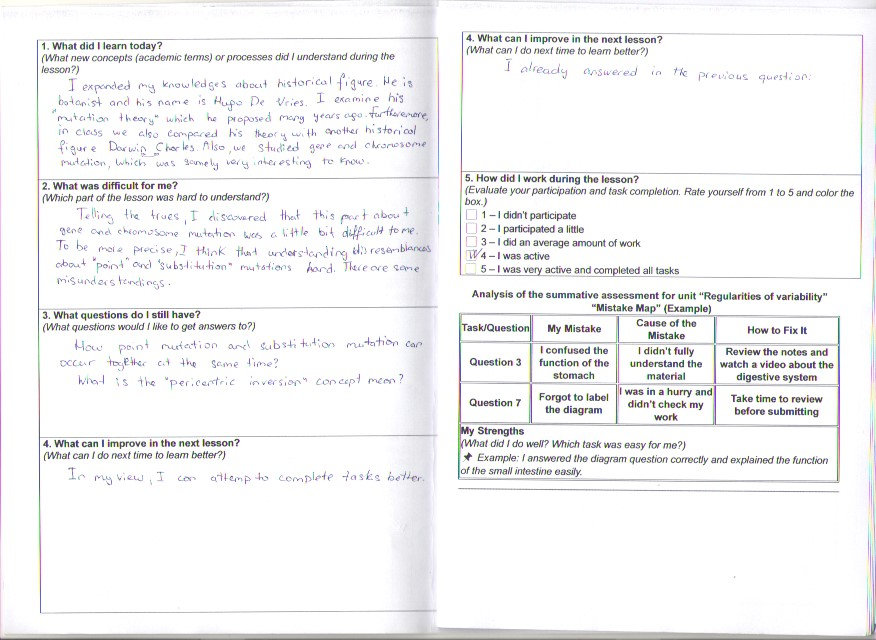 1. What did I learn today?
(What new concepts (academic terms) or processes did I understand during the
lesson?)
I expanded my knowledges about historical figure. He is
botanist and his name is Hugo De Vries. I examine his
"mutation theory" which he proposed many years ago. Furthermore,
in class we also compared his theory with another historical
figure Darwin Charles. Also, we studied gene and chromosome
mutation, which was samely very interesting to know.
2. What was difficult for me?
(Which part of the lesson was hard to understand?)
Telling the trues, I discovered that this part about
gene and chromosome mutation was a little bit difficult to me.
To be more precise, I think that understanding disresemblances
about "point" and "substitution" mutations hard. There are some
misunderstandings.
3. What questions do I still have?
(What questions would I like to get answers to?)
How point mutation and substitution mutation can
occur together at the same time?
What is the "pericentric inversion" concept mean?
4. What can I improve in the next lesson?
(What can I do next time to learn better?)
In my view, I can attemp to complete tasks better.
4. What can I improve in the next lesson?
(What can I do next time to learn better?)
I already answered in the previous question.
5. How did I work during the lesson?
(Evaluate your participation and task completion. Rate yourself from 1 to 5 and color the
box.)
1 – I didn't participate
2 – I participated a little
3 – I did an average amount of work
4 – I was active
5 – I was very active and completed all tasks
Analysis of the summative assessment for unit "Regularities of variability"
"Mistake Map" (Example)
Task/Question My Mistake Cause of the Mistake How to Fix It
Question 3 I confused the function of the stomach I didn't fully understand the material Review the notes and watch a video about the digestive system
Question 7 Forgot to label the diagram I was in a hurry and didn't check my work Take time to review before submitting
My Strengths
(What did I do well? Which task was easy for me?)
Example: I answered the diagram question correctly and explained the function
of the small intestine easily.